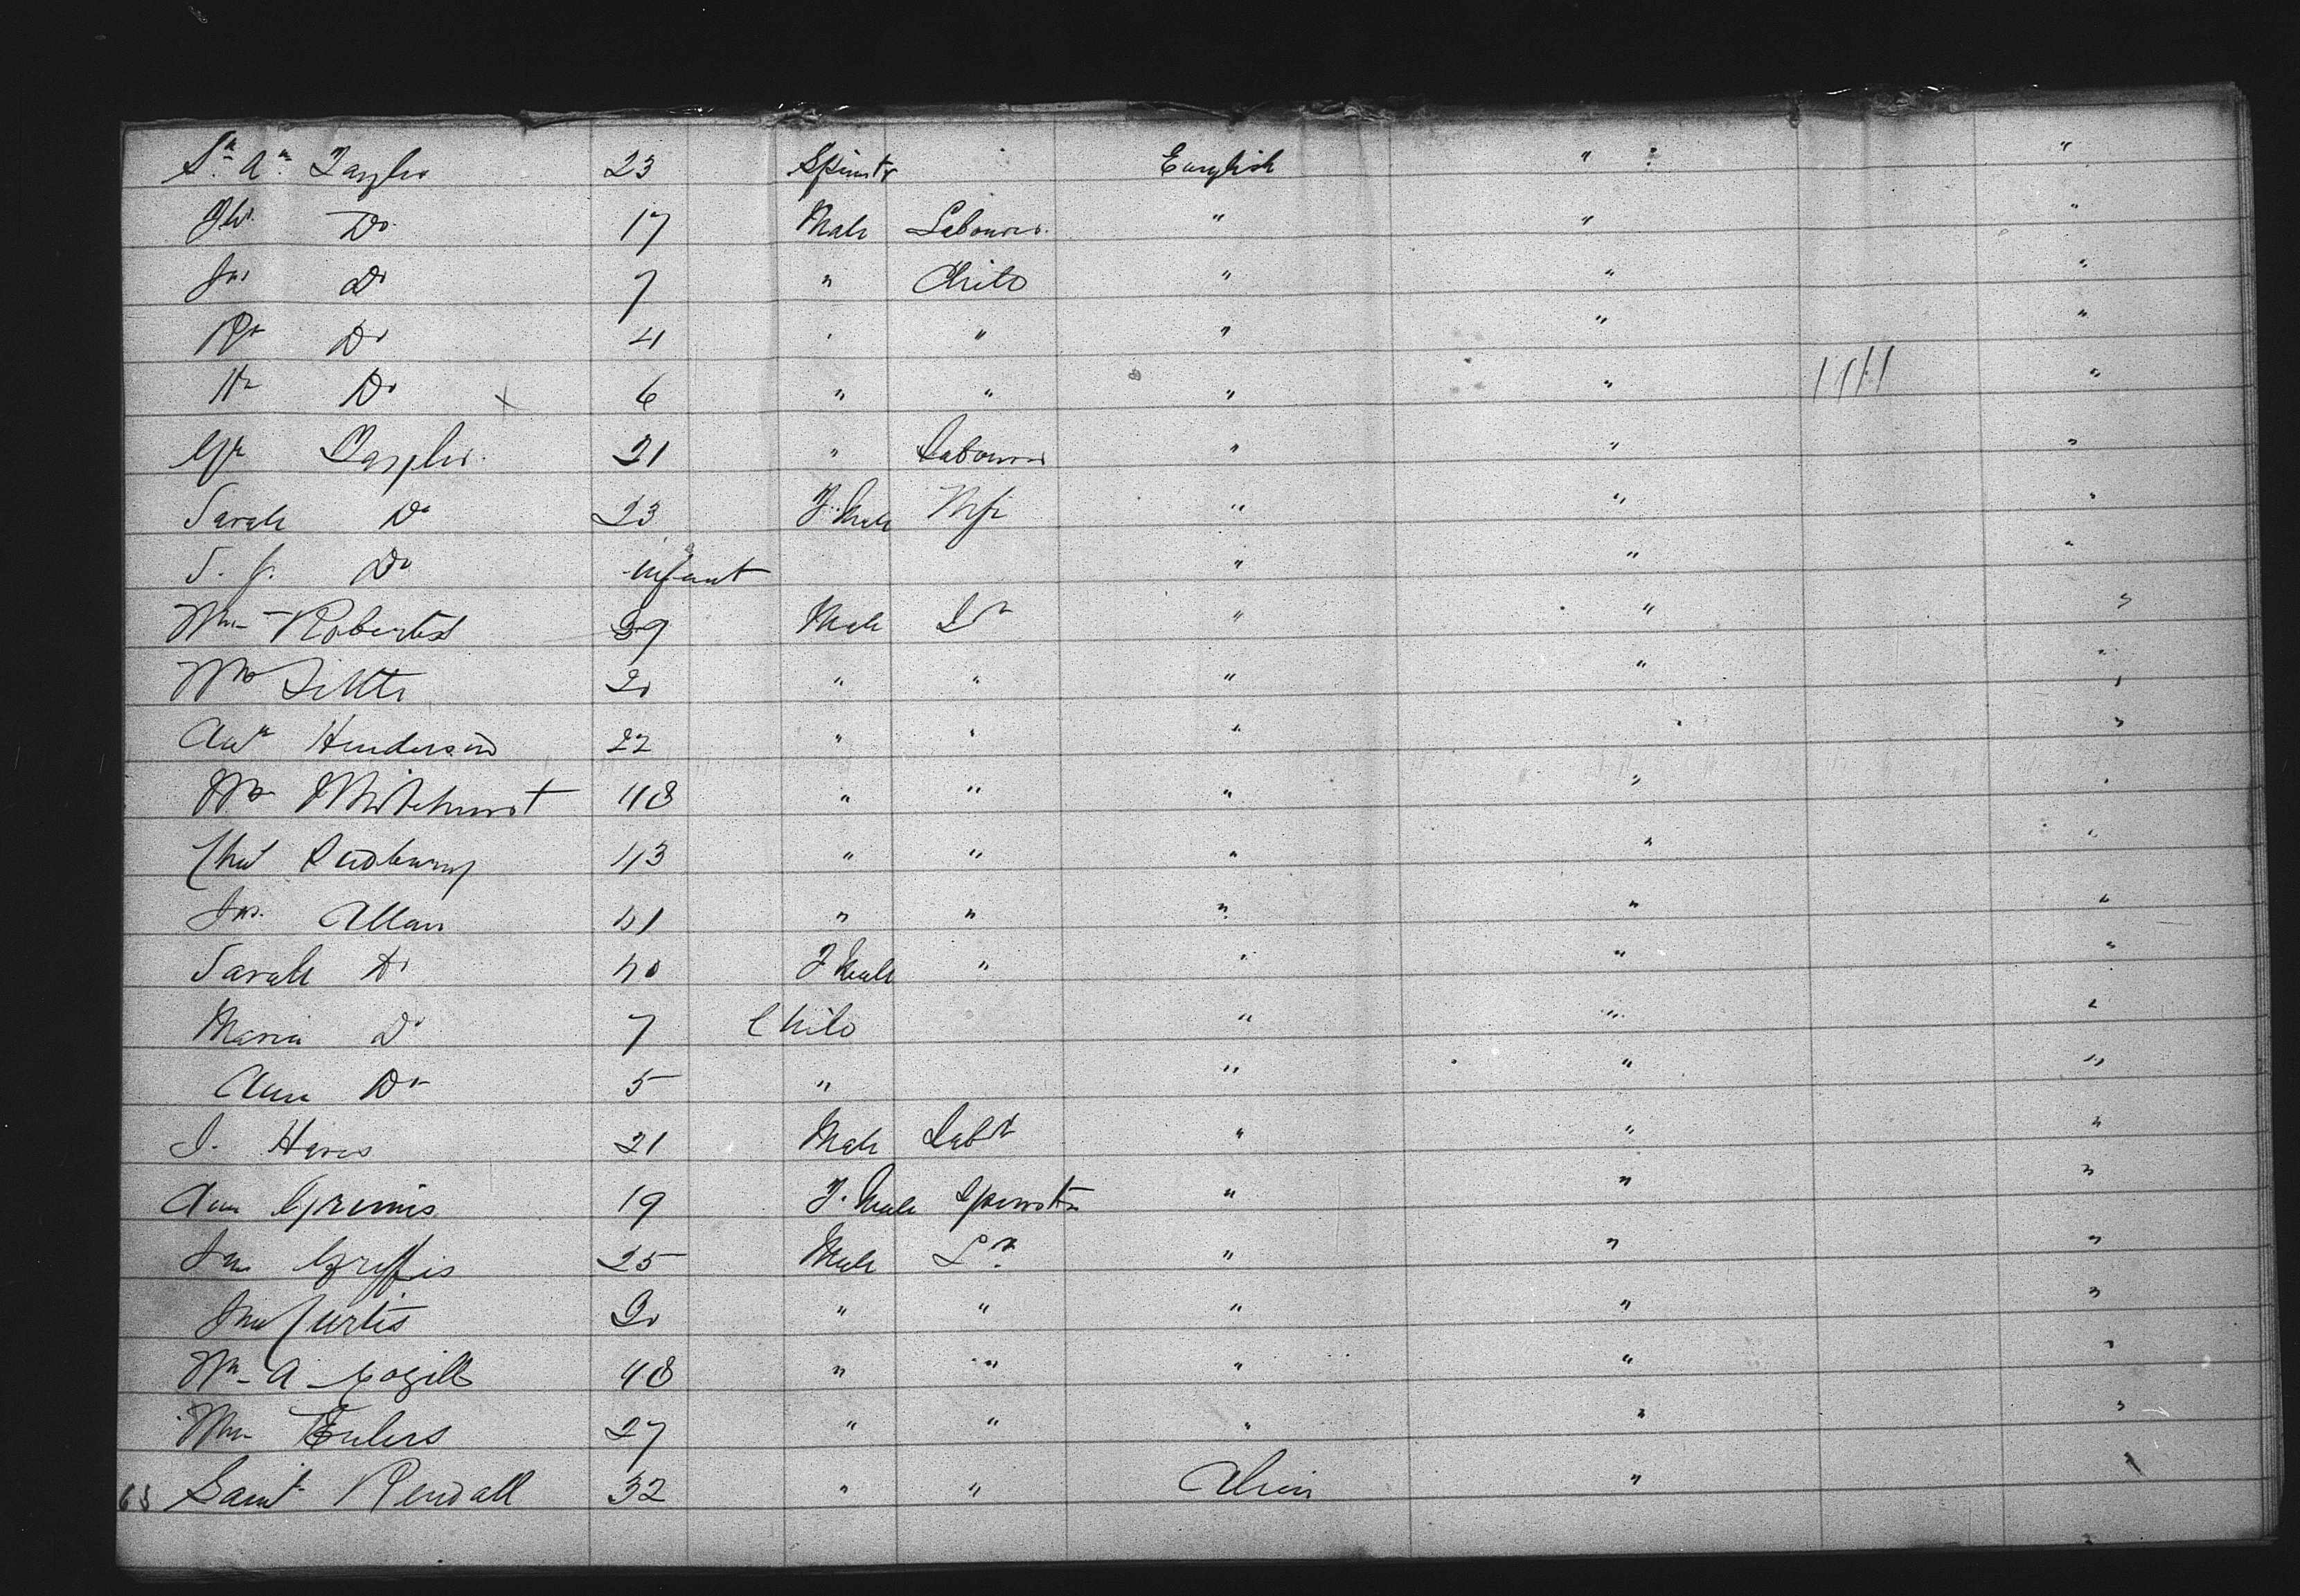 Sh An Taylor 23 Spinstr English " "
Do 17 Male Labourer " " "
Jno Do 7 " Child " " "
Do 4 " " " " "
Hy Do 6 " " " " "
Geo Taylor 21 " Labourer " " "
Sarah Do 23 F.Male Wife " " "
S. J. Do infant " " "
Wm Roberts 39 Male Lr " " "
Wm 20 " " " " "
Andw Henderson 22 " " " " "
Wm Whitehurst 48 " " " " "
Chas Sudbury 43 " " " " "
Jno. Allan 41 " " " " "
Sarah Do 40 F Male " " " "
Maria Do 7 Child " " "
Ann Do 5 " " " "
J. Hares 21 Male Labr " " "
Ann Grimis 19 F. Male Spinstr " " "
Jno Griffis 25 Male Lr " " "
Jno Curtis 20 " " " " "
Wm A Cogill 48 " " " " "
Wm Enlers 27 " " " " "
65 Saml Rendall 32 " " Alien " "